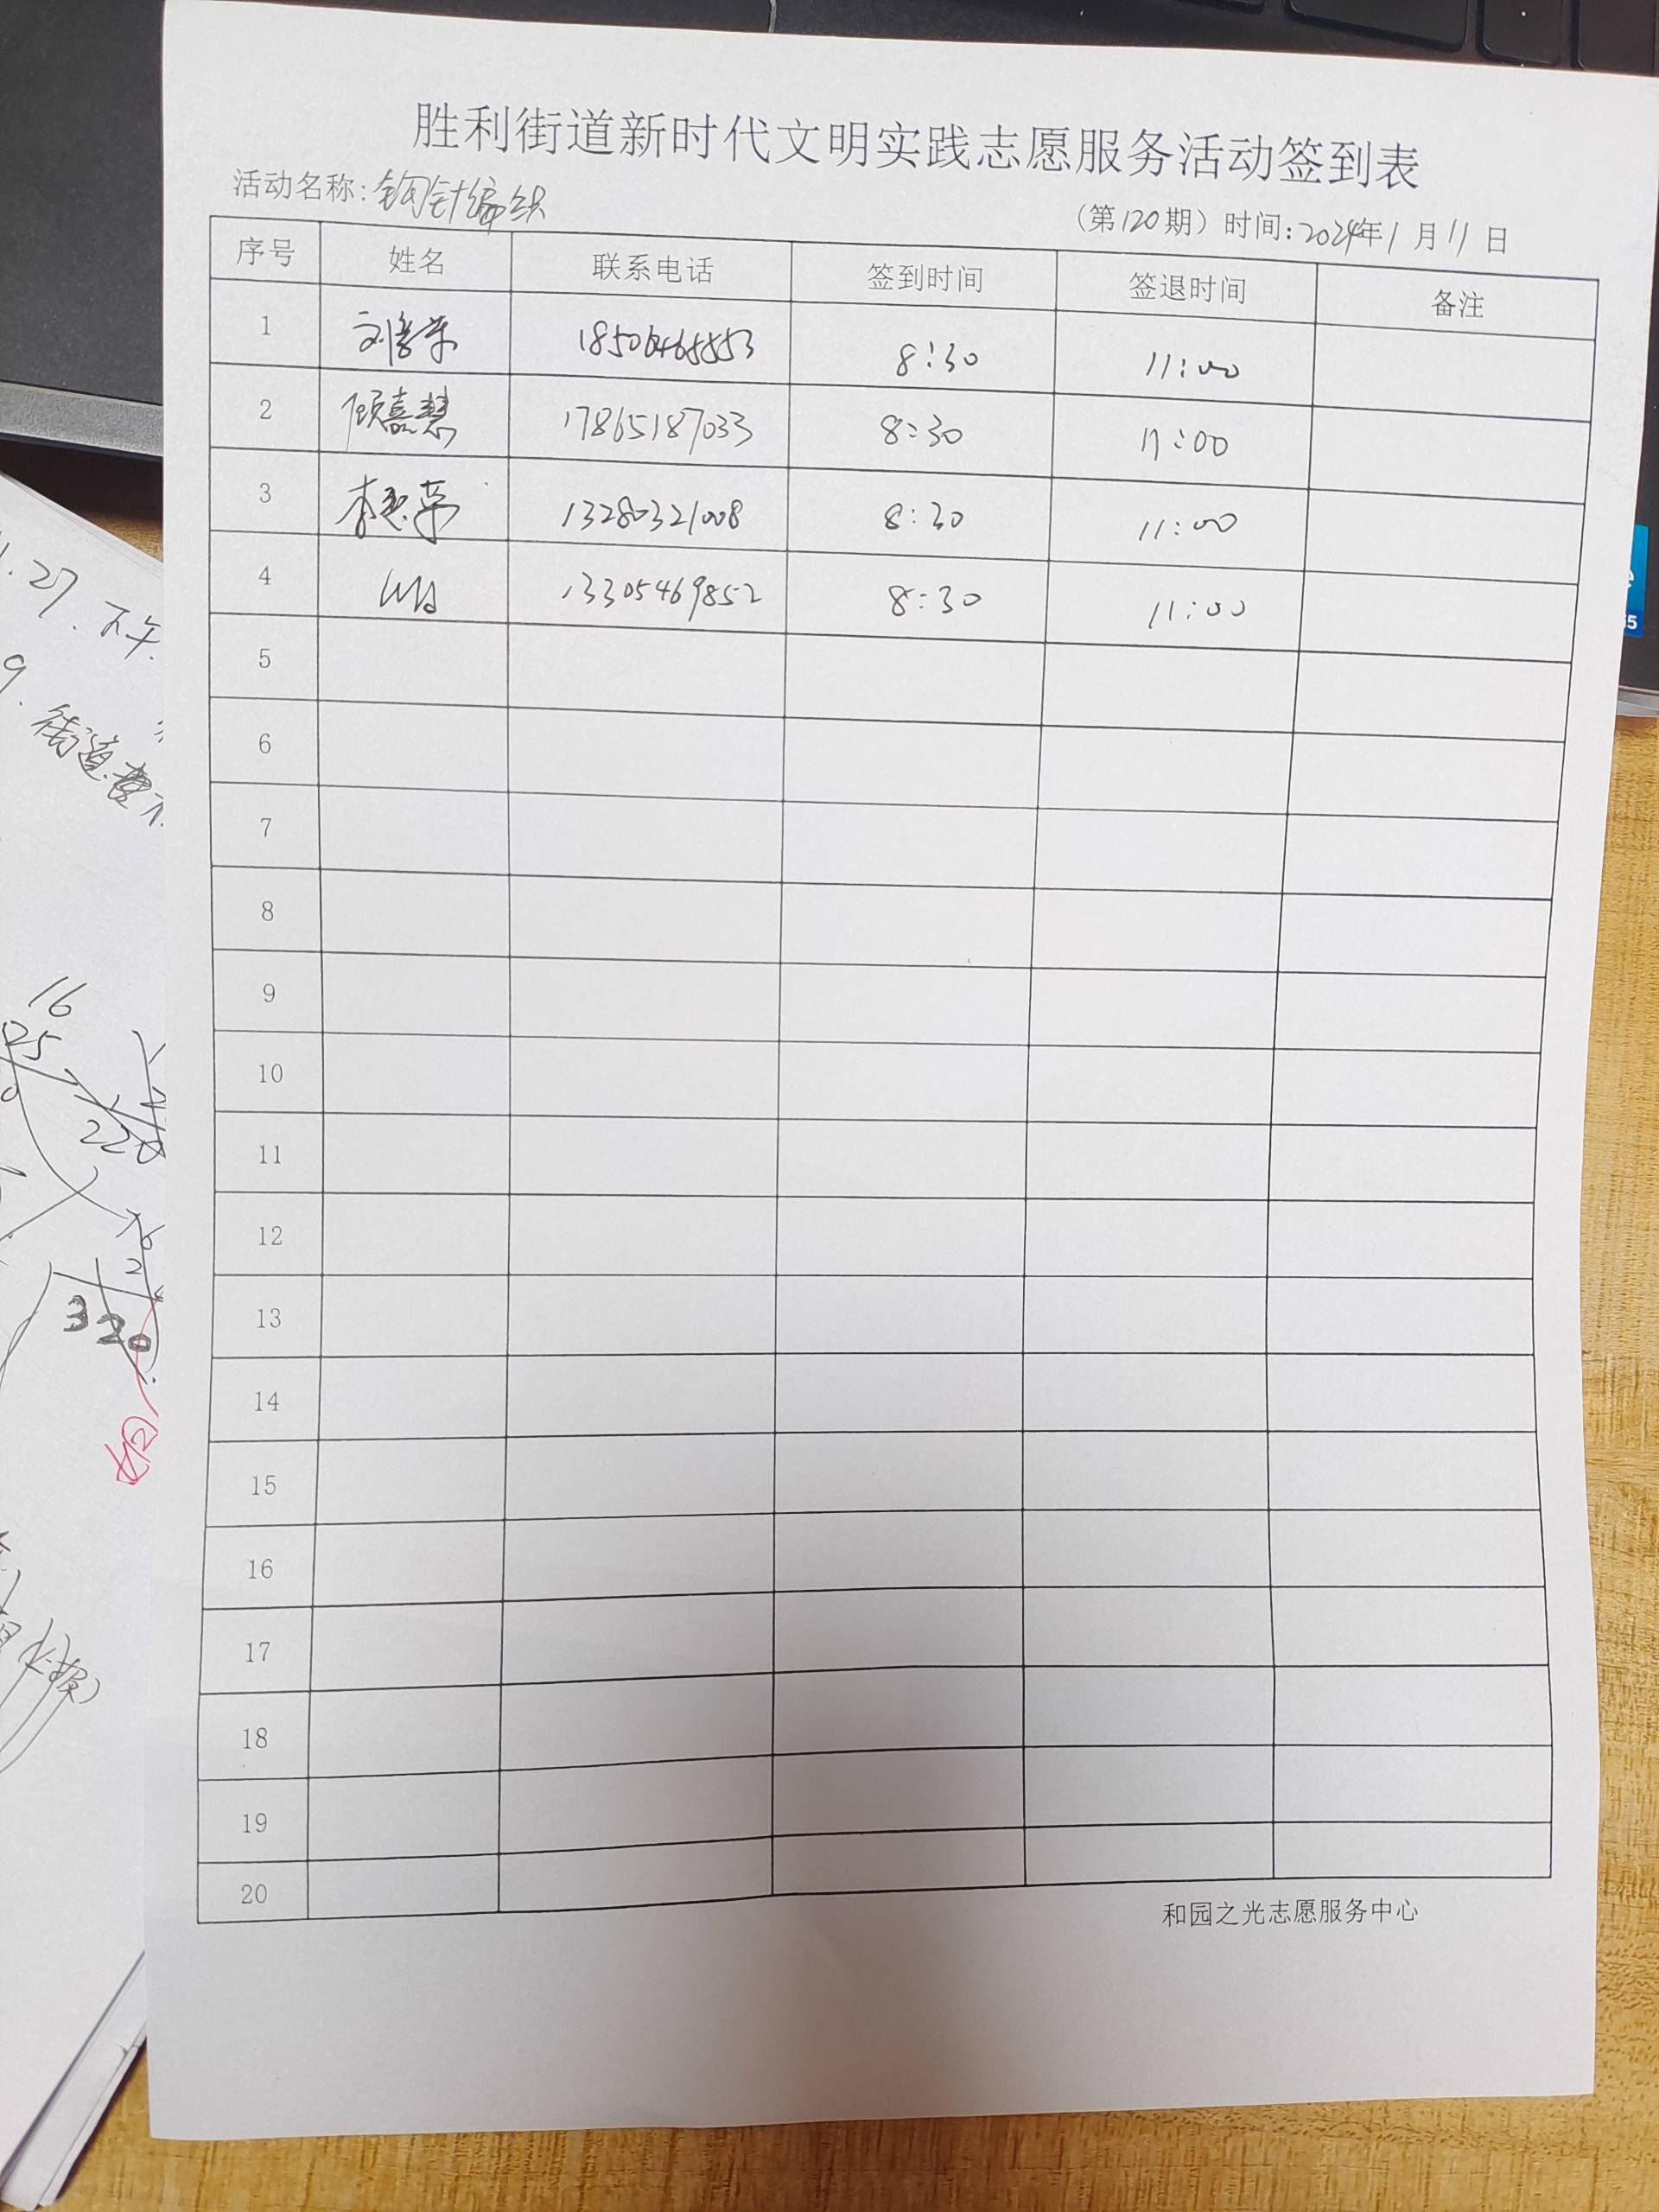 胜利街道新时代文明实践志愿服务活动签到表
活动名称:钩针编织
(第120期) 时间:2024年1月11日
序号 姓名 联系电话 签到时间 签退时间 备注
1 18506465553 8:30 11:00
2 顾嘉慧 17865187033 8:30 11:00
3 13280321008 8:30 11:00
4 13305469852 8:30 11:00
5
6
7
8
9
10
11
12
13
14
15
16
17
18
19
20
和园之光志愿服务中心
27.下午.
9.
街道
16
25
220
320